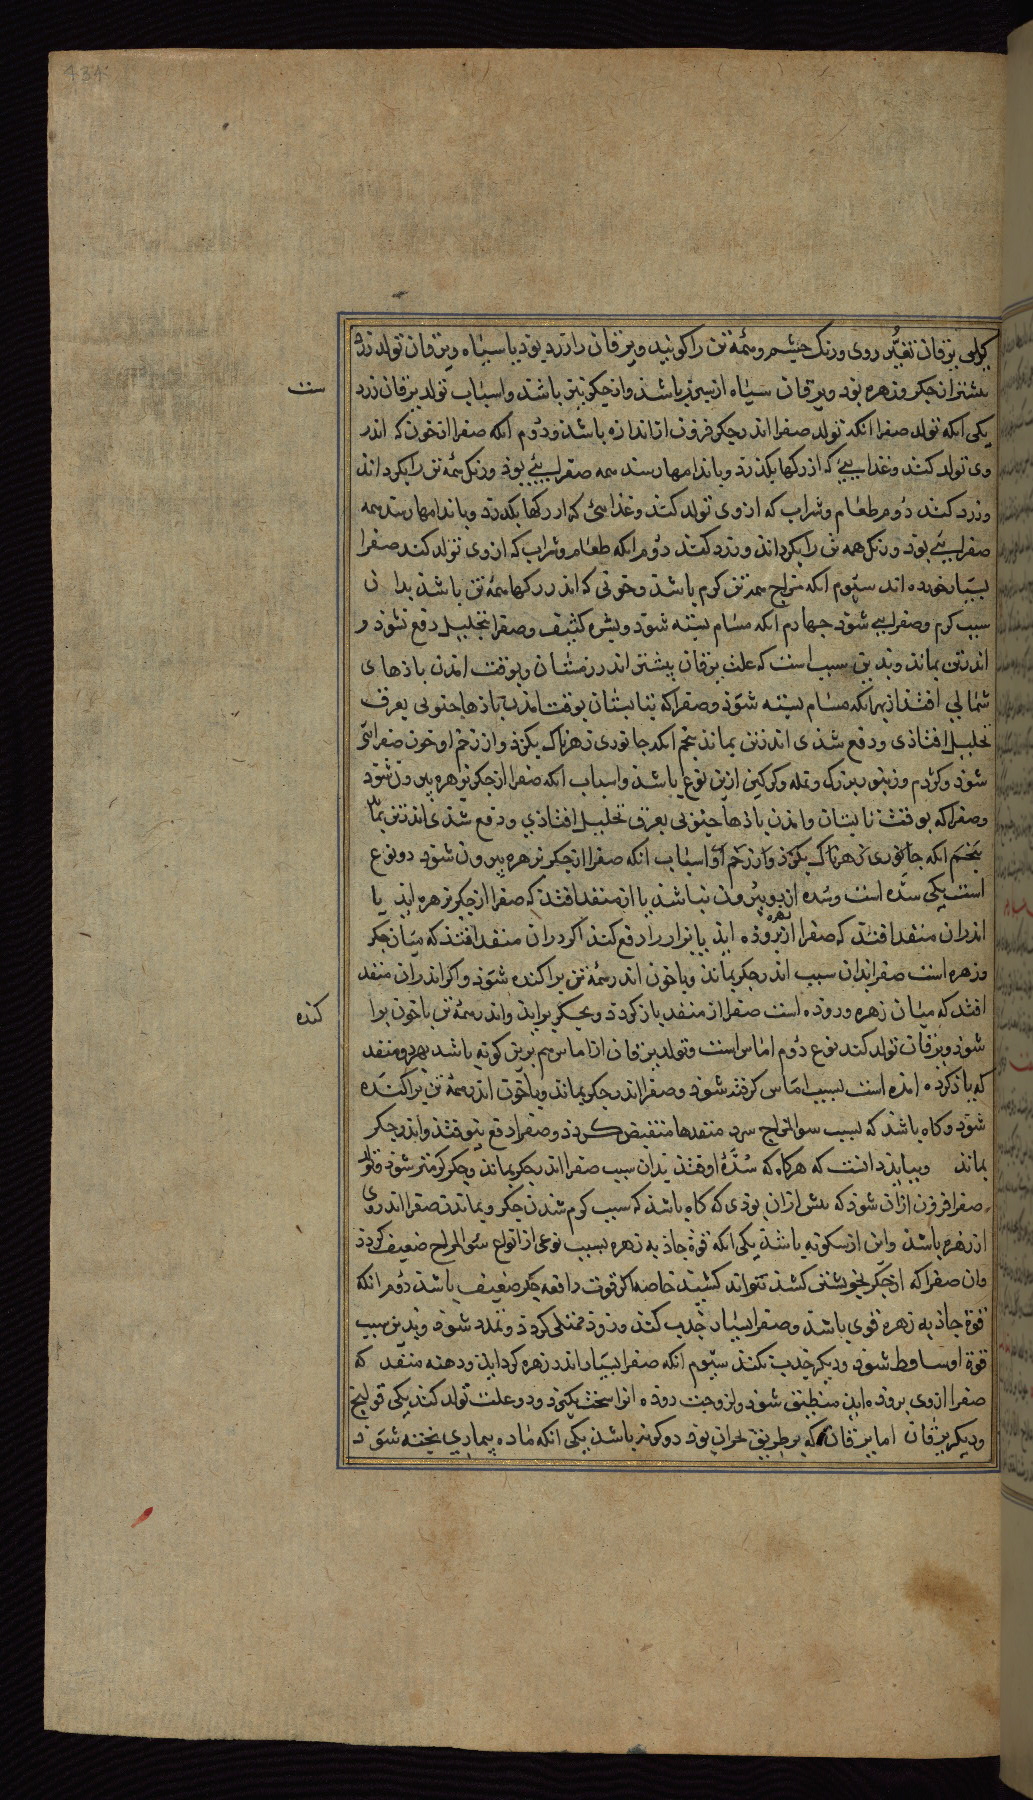 434
یرقان تغیّر روی و رنک چشم و همۀ تن را کویند و یرقان را زرد بوذ یا سیٰاه و یرقان تولد زرد
بیشتر از جکر و زهره بوذ و یرقان سیٰاه از سپرز باشذ و از جکر نیز باشذ و اسبٰاب تولد یرقان زرد
ست
یکی انکه تولد صفرا انکه تولد صفرا اندر جکر فزون از اندازه باشذ و دوُم انکه صفرا از خون که اندر
وی تولد کنند و غذایی که از رکها بکذرذ و باندامها رسذ همه صفرایی بوذ و رنک همۀ تن را بکرداند
و زرد کند دوُم طعٰام و شراب که از وی تولد کند و غذایی که از رکها بکذرذ و باندامها رسذ همه
صفرایی بوذ و رنک همه تن را بکرداند و زرد کند دوُم انکه طعام و شراب که از وی تولد کند صفرا
بسیٰار خورده اند سیّوم انکه مزاج همه تن کرم باشذ و خونی که اندر رکها همۀ تن باشذ بدان
سبب کرم و صفرایی شوذ چهارم انکه مسٰام بسته شوذ و بشره کثیف و صفرا بتحلیل دفع نشوذ و
اندر تن بماند و بدین سبب است که علت یرقان بیشتر اندر زمستان و بوقت امدن باذهای
شمٰالی افتذ از بهر انکه مسٰام بسته شوذ و صفرا که بتابستان بوقت امدن باذها جنوبی بعرق
تحلیل افتاذی و دفع شذی اندر تن بماند پنجم انکه جانوری زهرناک بکزذ و از زخم او خون صفرائی
شوذ و کژدم و زنبور بزرک و نمله و کرکین ازین نوع باشذ و اسباب انکه صفرا از جکر بزهره بیرون شوذ
و صفرا که بوقت تابستان و امدن باذها جنوبی بعرق تحلیل افتاذی و دفع شذی اندر تن بماند
پنجم انکه جانوری زهرناک بکزذ و از زخم او اسبٰاب انکه صفرا از جکر بزهره بیرون شوذ دو نوع
است یکی سدّه است و سده از دو بیرون نباشذ یا از منفذ افتذ که صفرا از جکر بزهره ایذ یا
اندران منفذ افتذ که صفرا از زهره بروذه ایذ یا براز را دفع کند اکر دران منفذ افتذ که میٰان جکر
و زهره است صفرا بدان سبب اندر جکر بماند و با خون اندر همۀ تن پراکنده شوذ و اکر اندران منفذ
افتذ که میٰان زهره و روذه است صفرا از منفذ باز کردذ و بجکر برایذ و اندر همۀ تن با خون پرا
کنده
شوذ و یرقان تولد کند نوع دوُم اماس است و تولد یرقان از اماس هم برین کونه باشذ بهر دو منفذ
که یاذ کرده امده است بسبب امٰاس کرفته شوذ و صفرا اندر جکر بماند و با خون اندر همۀ تن پراکنده
شوذ و کاه باشذ که بسبب سو المزاج سرد منفذها منقبض کردذ و صفرا دفع نیوفتذ و اندر جکر
بماند و ببایذ دانست که هرکاه که سُدّه اوفتذ بدان سبب صفرا اندر جکر بماند و جکر کرمتر شوذ و تولد
صفرا فزون ازان شوذ که پیش ازان بوذی که کاه باشذ که سبب کرم شدن جکر و بماندن صفرا اندروی
از زهره باشذ و این از سکونه باشذ یکی انکه قوة جاذبه زهره بسبب نوعی از انواع سو المزاج ضعیف کردذ
وان صفرا که از جکر بخویشتن کشذ نتواند کشیذ خاصه اکر قوت دافعه جکر ضعیف باشذ دوُم انکه
قوة جاذبه زهره قوی باشذ و صفرا بسیٰار جذب کند و زوذ ممتلی کردذ و تمدد شوذ و بدین سبب
قوة او ساقط شوذ و دیکر جذب نکند سیّوم انکه صفرا بسیٰار اندر زهره کرد ایذ و دهنه منفذ که
صفرا از وی بروذه ایذ منطبق شوذ و لزوجت روذه انرا سخت بکیرذ و دو علت تولد کند یکی قولنج
و دیکر یرقان اما یرقان که بر طریق بحران بوذ دو کونه باشذ یکی انکه مٰاده بیماری پخته شوذ